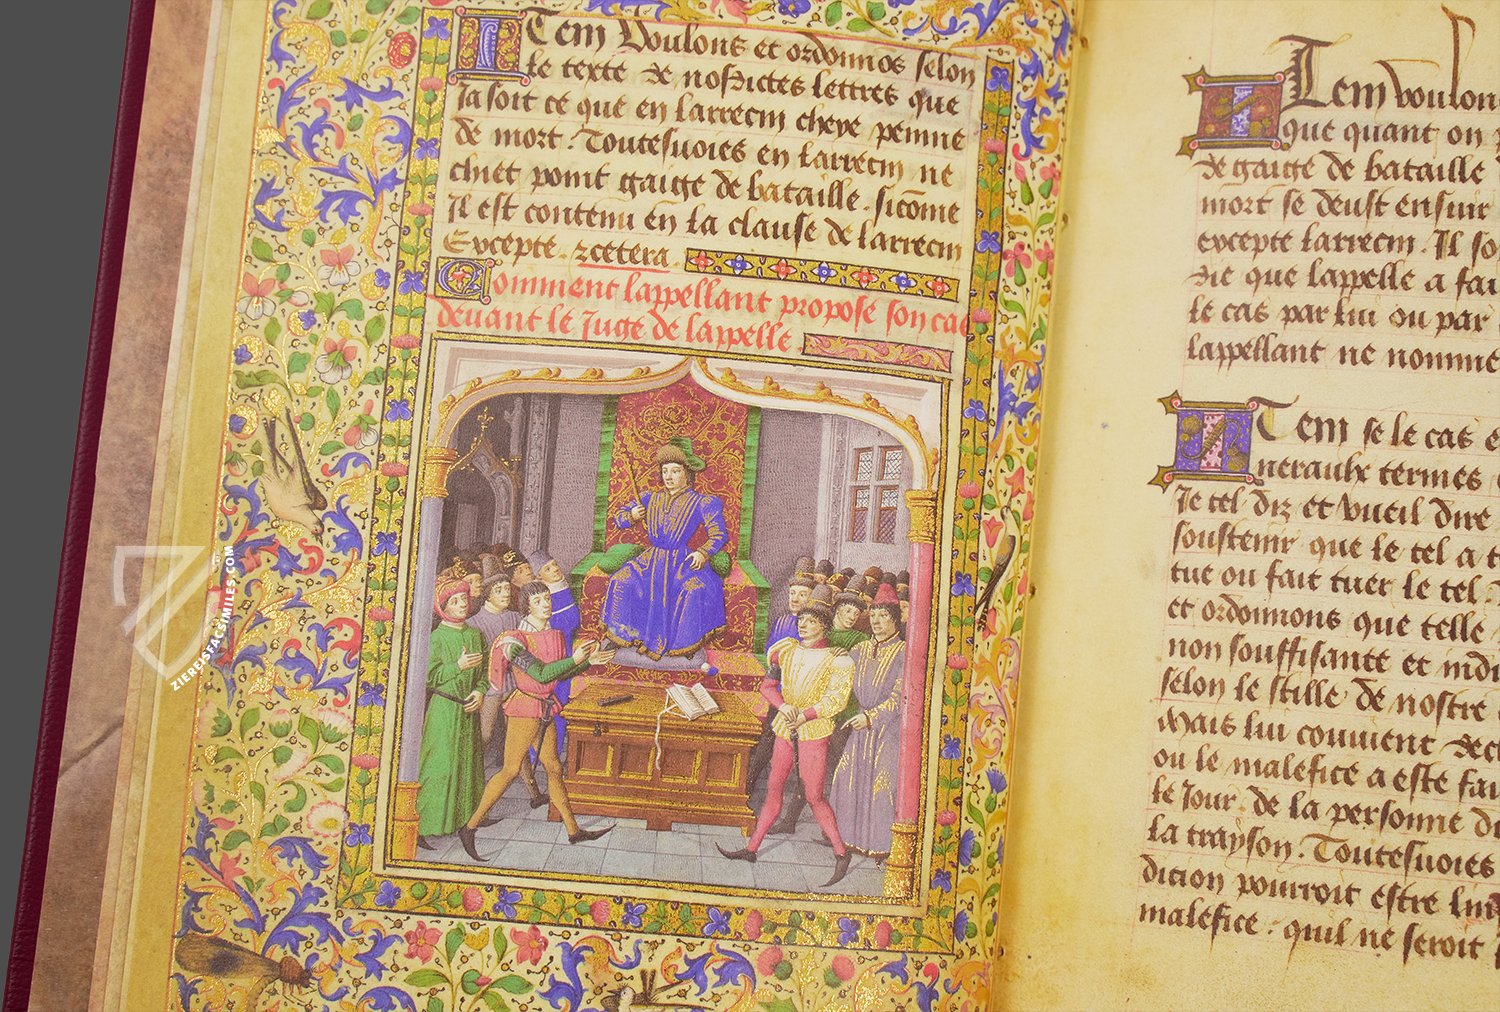 ITem Voulons et ordonnos selon
le texte de nosdictes lettres que
Ja soit ce que en larrecin cheye peinne
de mort. Toutesuoies en larrecin ne
chiet point gaige de bataille. sicome
Il est contenu en la clause de larrecin
Excepte. zcetera.
Comment lappellant propose son cas
deuant le Juge de lappelle
Item voulon
que quant on
de gaige de bataille
mort se deust ensuir
excepte larrecin. Il so
die que lappelle a fai
le cas par lui ou par
lappellant ne nomme
ITem se le cas e
neraulx termes
Je tel diz et vueil dire
soustenir que le tel a t
tue ou fait tuer le tel.
et ordonnons que telle
non souffisante et indi
selon le stille de nostre
Mais lui conuient decl
ou le malefice a este fai
le Jour de la personne du
la trayson. Toutesuoies
dicion pourroit estre lin
malefice. quil ne seroit
ZIEREISFACSIMILES.COM